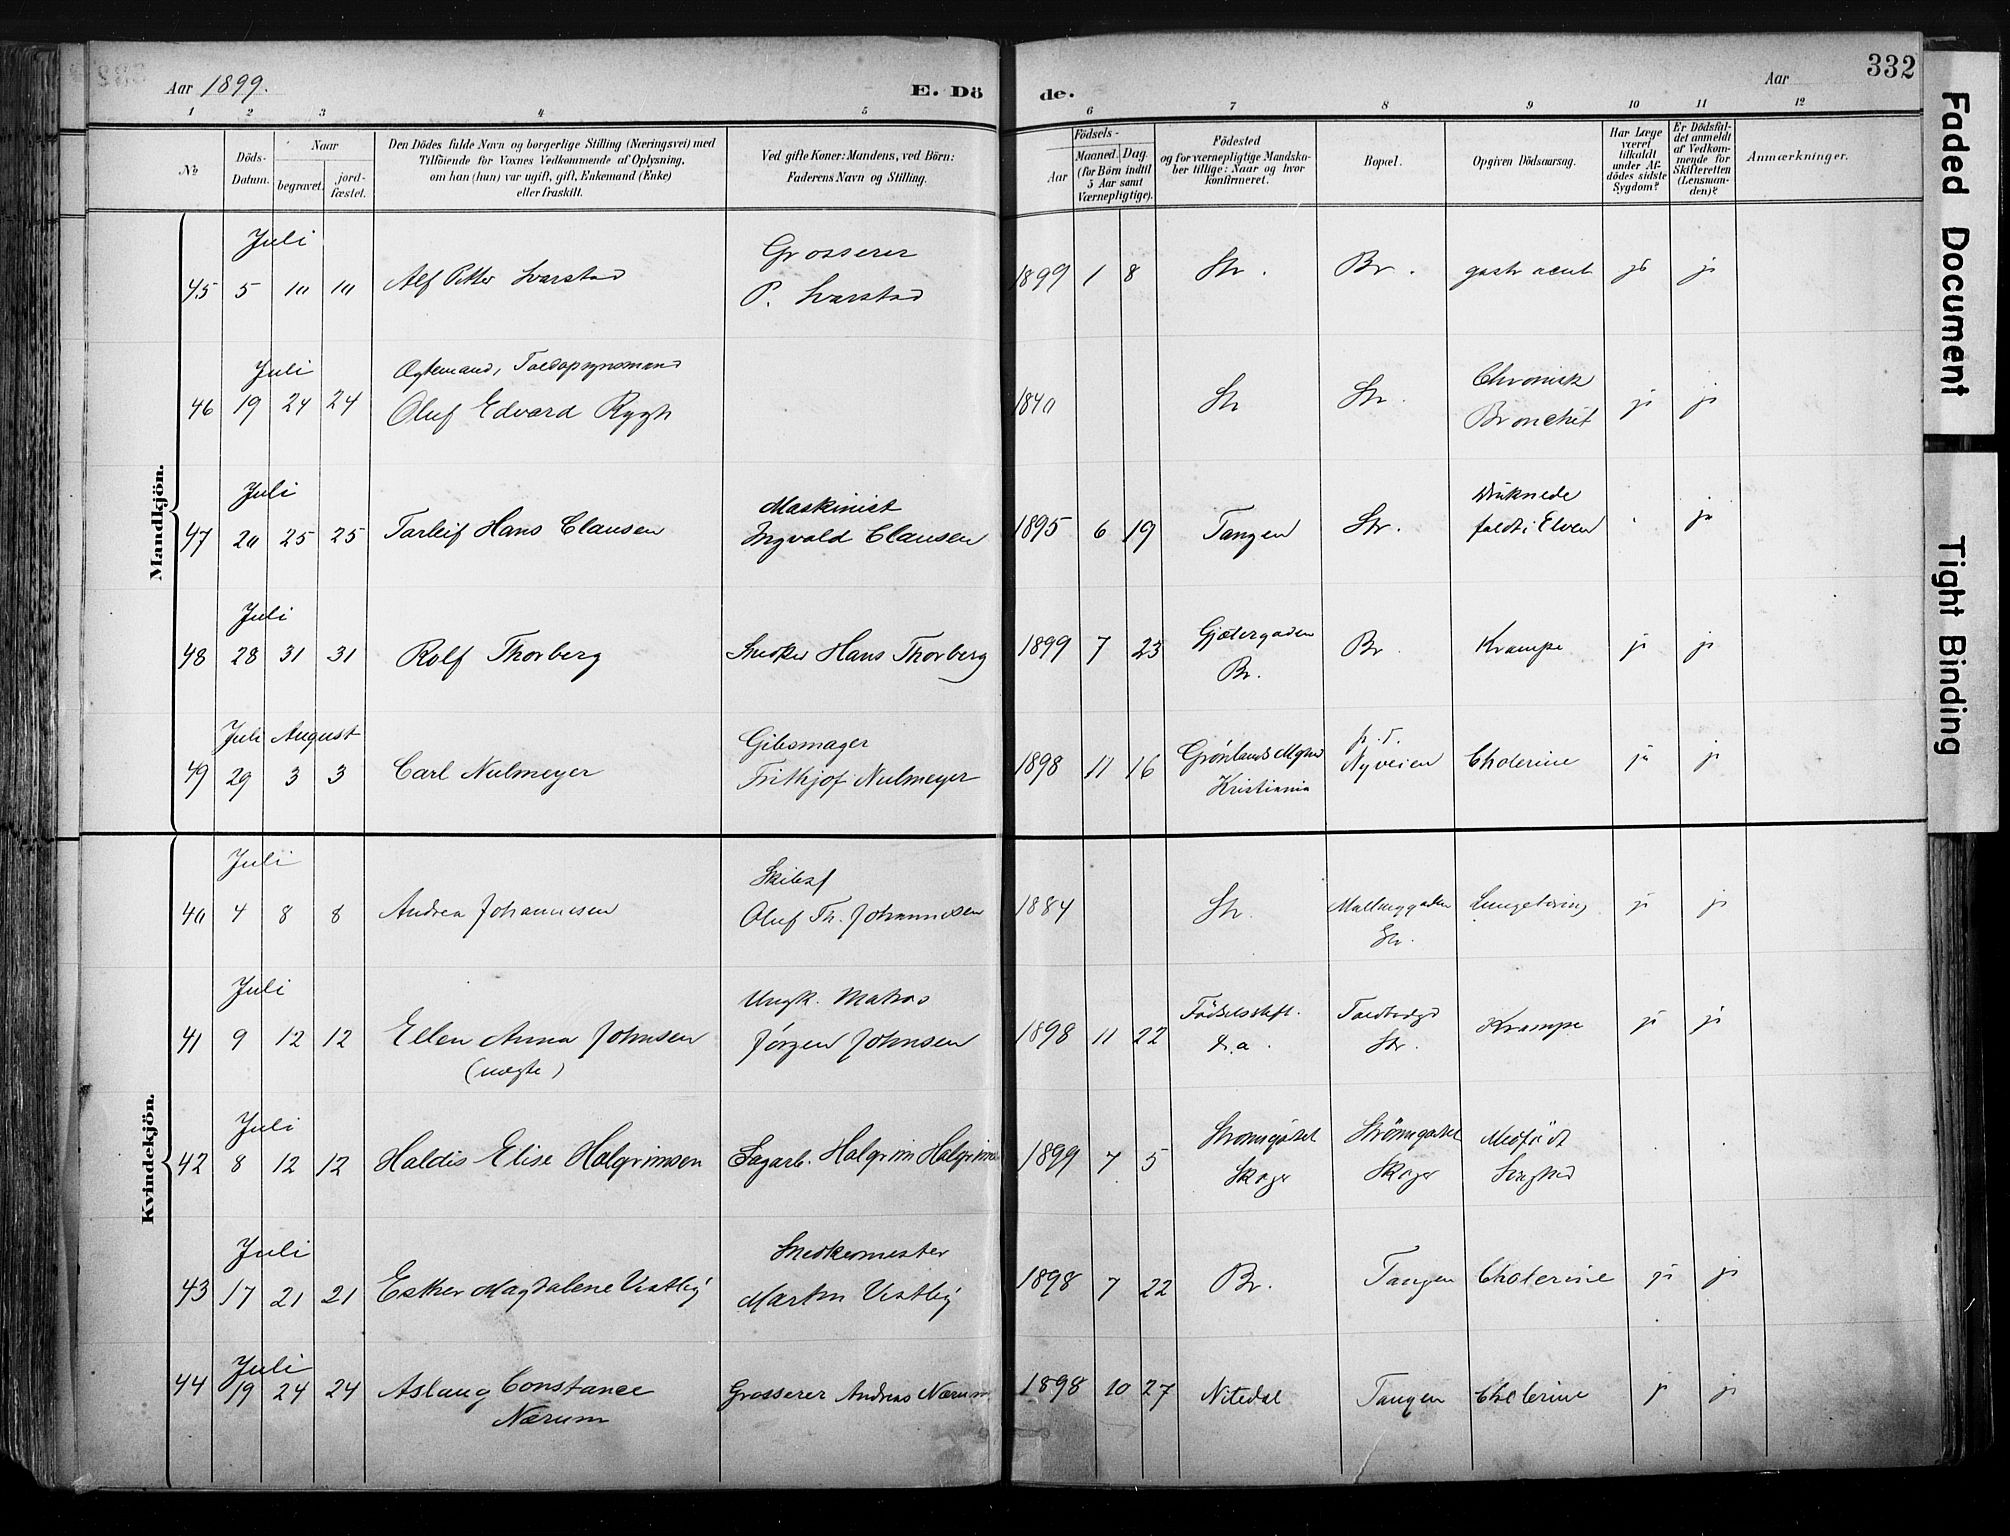 Aar 1899.
E. Dö
de.
Aar
332
1 2 3 4 5 6 7 8 9 10 11 12
No
Döds-
Datum.
Naar
begravet.
jord-
fæstet.
Den Dödes fulde Navn og borgerlige Stilling (Næringsvei) med
Tilföiende for Voxnes Vedkommende af Oplysning,
om han (hun) var ugift, gift, Enkemand (Enke)
eller fraskilt.
Ved gifte Koner: Mandens, ved Börn:
Faderens Navn og Stilling.
Födsels-
Aar
Maaned.
Dag.
(for Börn indtil
5 Aar samt
Værnepligtige).
Födested
og for værnepligtige Mandska-
ber tillige: Naar og hvor
konfirmeret.
Bopæl.
Opgiven Dödsaarsag.
Har Læge
været
tilkaldt
under Af-
dödes sidste
Sygdom?
Er Dödsfal-
det anmeldt
af Vedkom-
mende for
Skifteretten
(Lensman-
den)?
Anmærkninger.
Mandkjön.
Juli
Grosserer
45 5 10 10 Alf Petter Svarstad
P. Svarstad
1899 1 8 Str. Br. gastr acut ja ja
Juli
Ægtemand, Toldopsynsmand
46 19 24 24 Oluf Edvard Rygh
1840 Str Str.
Chronisk
Bronchit ja ja
Juli
Maskinist
47 20 25 25 Torleif Hans Clausen
Ingvald Clausen
1895 6 19 Tangen Str.
Druknede
faldt i Elven ja
Juli
48 28 31 31 Rolf Thorberg
Snedker Hans Thorberg
1899 7 23
Gjætergaden
Br.
Br. Krampe ja ja
Juli August
Gibsmager
49 29 3 3 Carl Nulmeyer
Frithjof Nulmeyer
1898 11 16 Grønlands
Kristiania
p. t.
Nyveien Cholerine ja ja
Kvindekjön.
Juli
Skibsf
40 4 8 8 Andrea Johannesen
Oluf Th. Johannesen
1884 Str.
Mallinggaden
Str.
ja ja
Juli
Ungk. Matros
41 9 12 12 Ellen Anna Johnsen
(uægte)
Jørgen Johnsen
1898 11 22
Födselsstift.
Kr.a.
Toldbodgd
Str.
Krampe ja ja
Juli
42 8 12 12 Haldis Elise Halgrimsen
Sagarb. Halgrim Halgrimsen
1899 7 5
Strömsgodset
Skoger
Strömsgodset
Skoger
Medfödt
Svaghed
Juli
Snedkermester
43 17 21 21 Esther Magdalene Vestby
Martin Vestby
1898 7 22 Br. Tangen Cholerine ja ja
Juli
44 19 24 24 Aslaug Constance
Nærum
Grosserer Andreas Nærum
1898 10 27 Nitedal Tangen Cholerine ja ja
Faded Document
Tight Binding